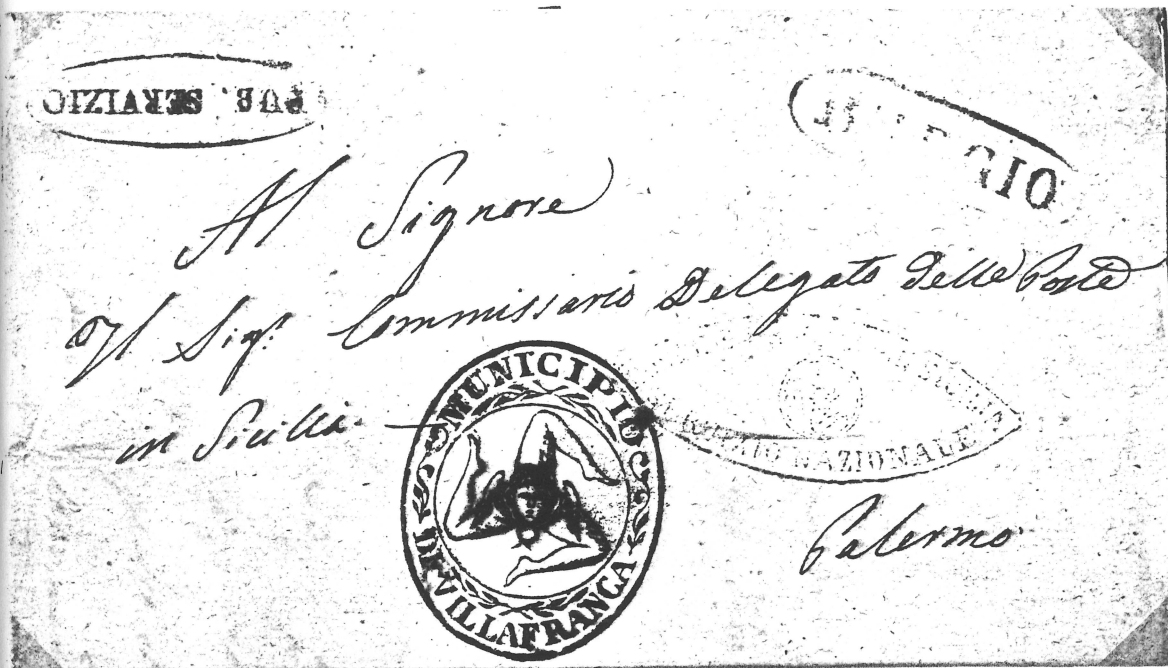 PUB. SERVIZIO
GIO
Al Signore
Il Sigr. Commissario Delegato delle Poste
in Sicilia.
MUNICIPIO
DI VILLAFRANCA
NAZIONALE
Palermo